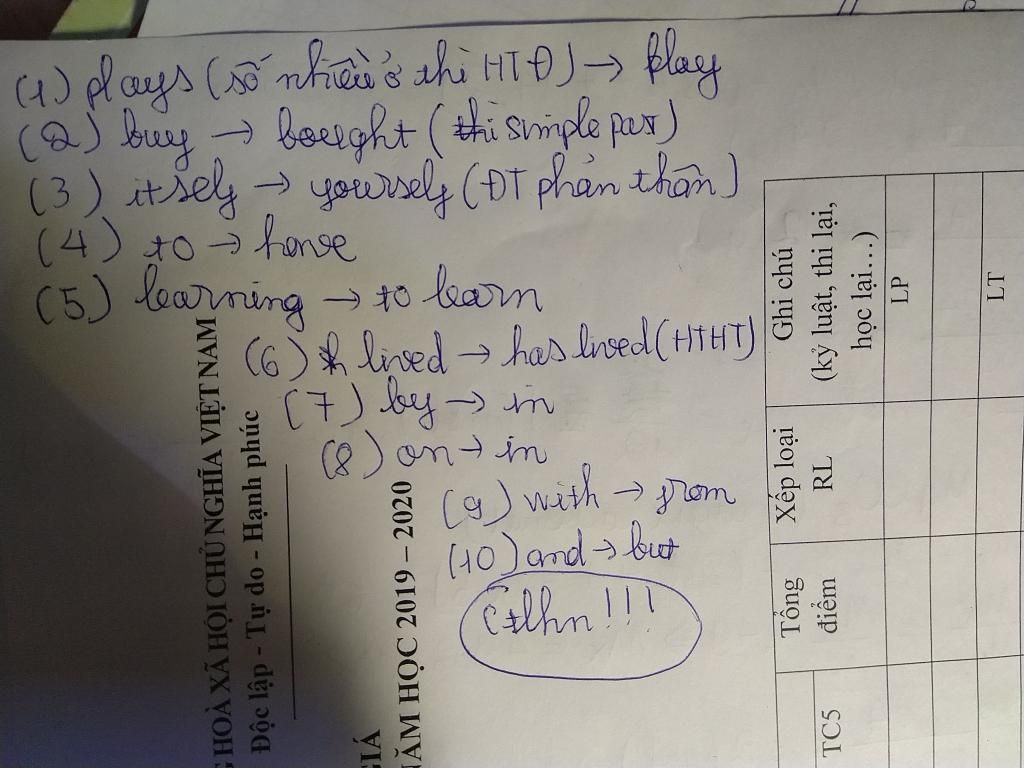 (1) plays (số nhiều ở thì HTĐ) → play
(2) buy → bought (thì simple past)
(3) itself → yourself (ĐT phản thân)
(4) to → have
(5) learning → to learn
(6) lived → has lived (HTHT)
(7) by → in
(8) on → in
(9) with → from
(10) and → but
Ctlhn !!!
G HOÀ XÃ HỘI CHỦ NGHĨA VIỆT NAM
Độc lập - Tự do - Hạnh phúc
GIÁ
NĂM HỌC 2019 – 2020
Ghi chú
(kỷ luật, thi lại,
học lại...)
LP
LT
Xếp loại
RL
Tổng
điểm
TC5